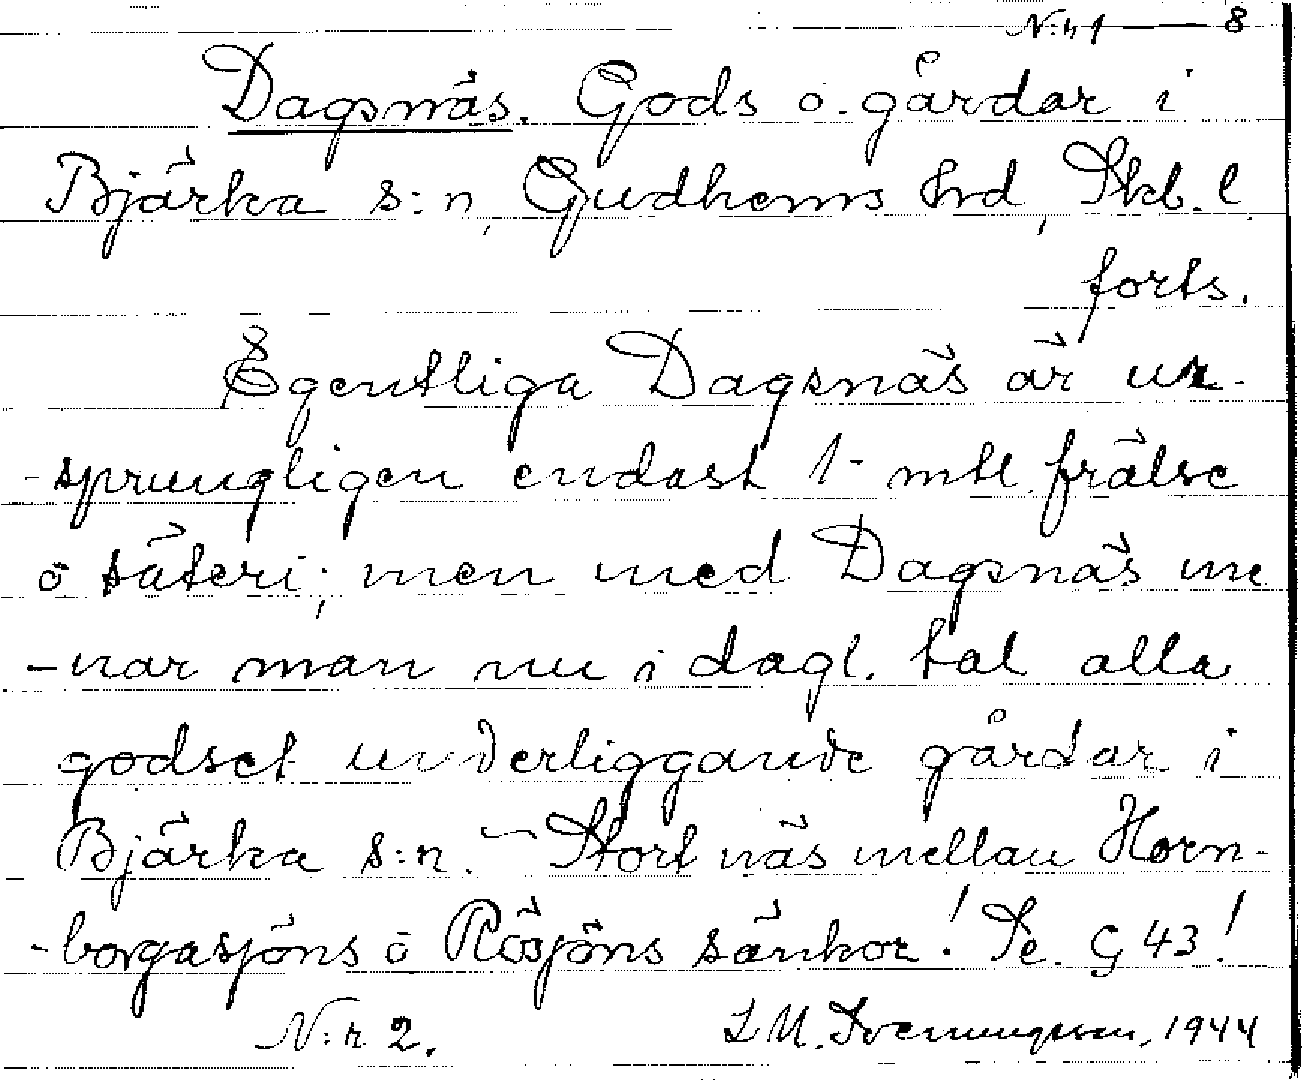 N:r 1 — 8
Dagsnäs. Gods o. gårdar i
Bjärka s:n, Gudhems hrd, Skb. l.
forts.
Egentliga Dagsnäs är ur-
-sprungligen endast 1- mtl. frälse
o säteri; men med Dagsnäs me
-nar man nu i dagl. tal alla
godset underliggande gårdar i
Bjärka s:n. – Stort näs mellan Horn-
-borgasjöns o Rösjöns sänkor! Se. G 43!
N:r 2. L M. Svenungsson, 1944